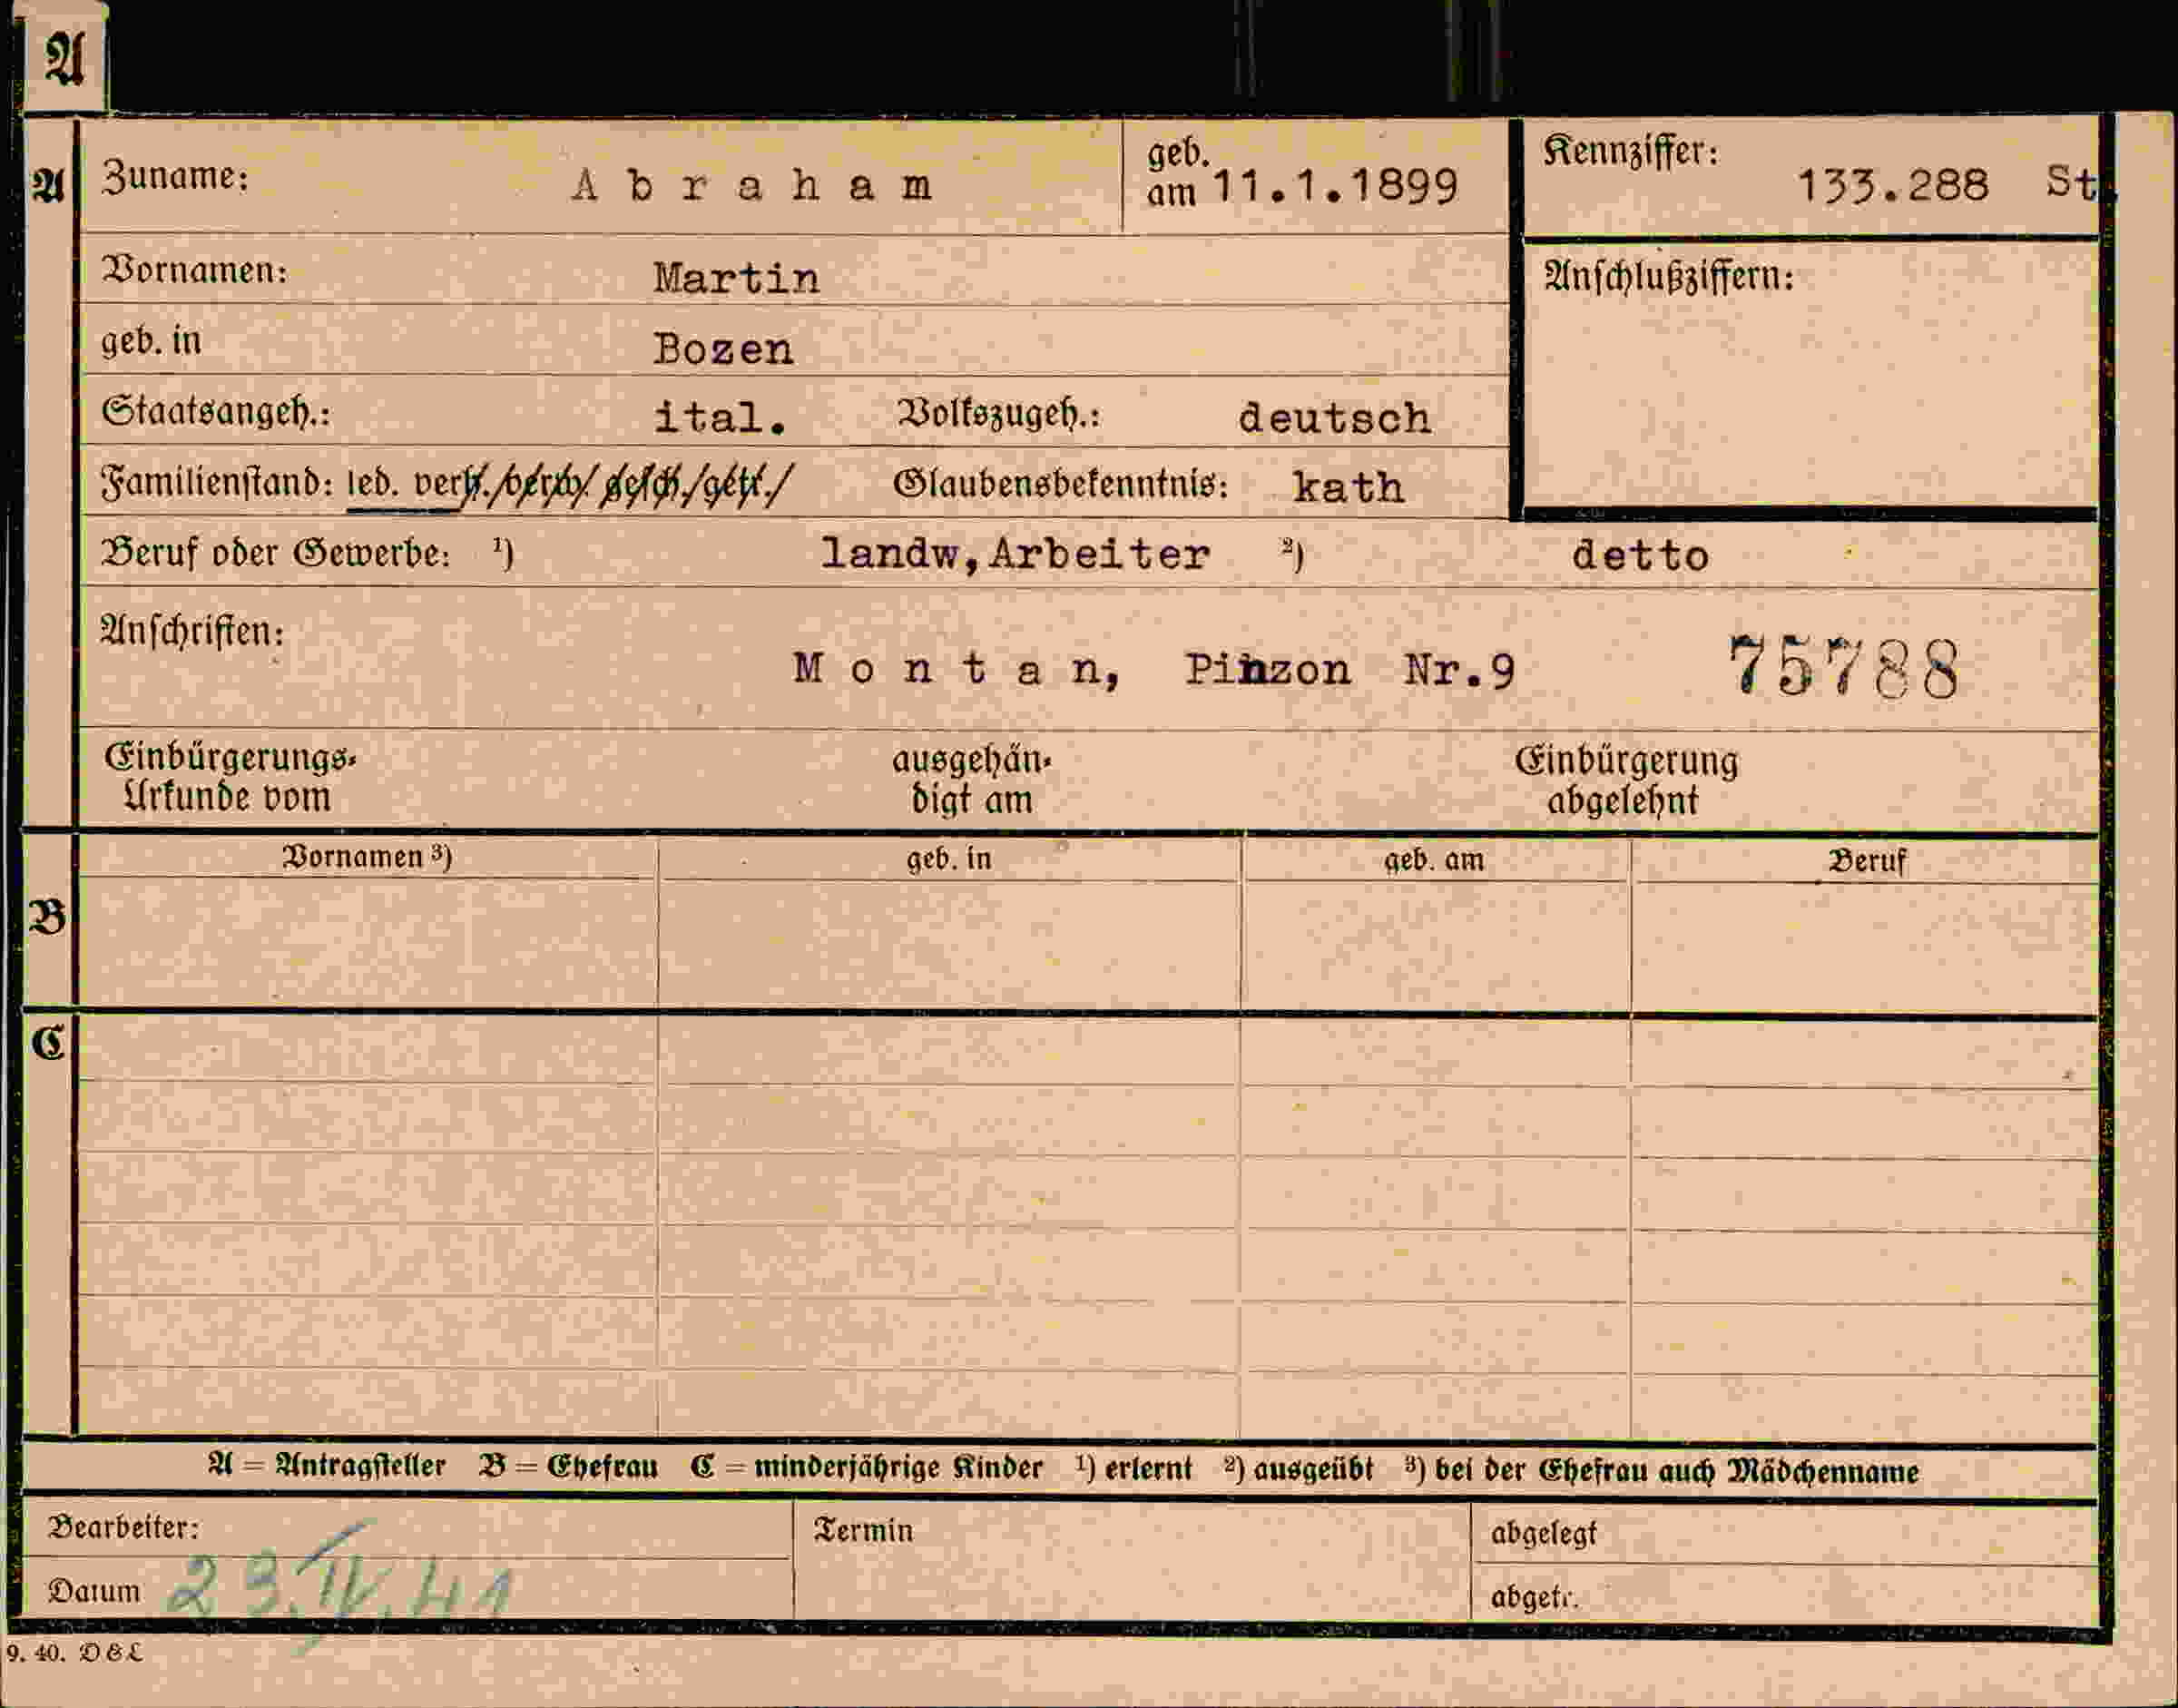 A
A Zuname: Abraham geb. am 11.1.1899 Kennziffer: 133.288 St.
Vornamen: Martin Anschlußziffern:
geb. in Bozen
Staatsangeh.: ital. Volkszugeh.: deutsch
Familienstand: led. verh./verw./gesch./getr./ Glaubensbekenntnis: kath
Beruf oder Gewerbe: ¹) landw,Arbeiter ²) detto
Anschriften:
Montan, Pinzon Nr.9 75788
Einbürgerungs-Urkunde vom ausgehändigt am Einbürgerung abgelehnt
Vornamen ³) geb. in geb. am Beruf
B
C
A = Antragsteller B = Ehefrau C = minderjährige Kinder ¹) erlernt ²) ausgeübt ³) bei der Ehefrau auch Mädchenname
Bearbeiter: Termin abgelegt
Datum 23.IV.41 abgetr.
9. 40. D&L